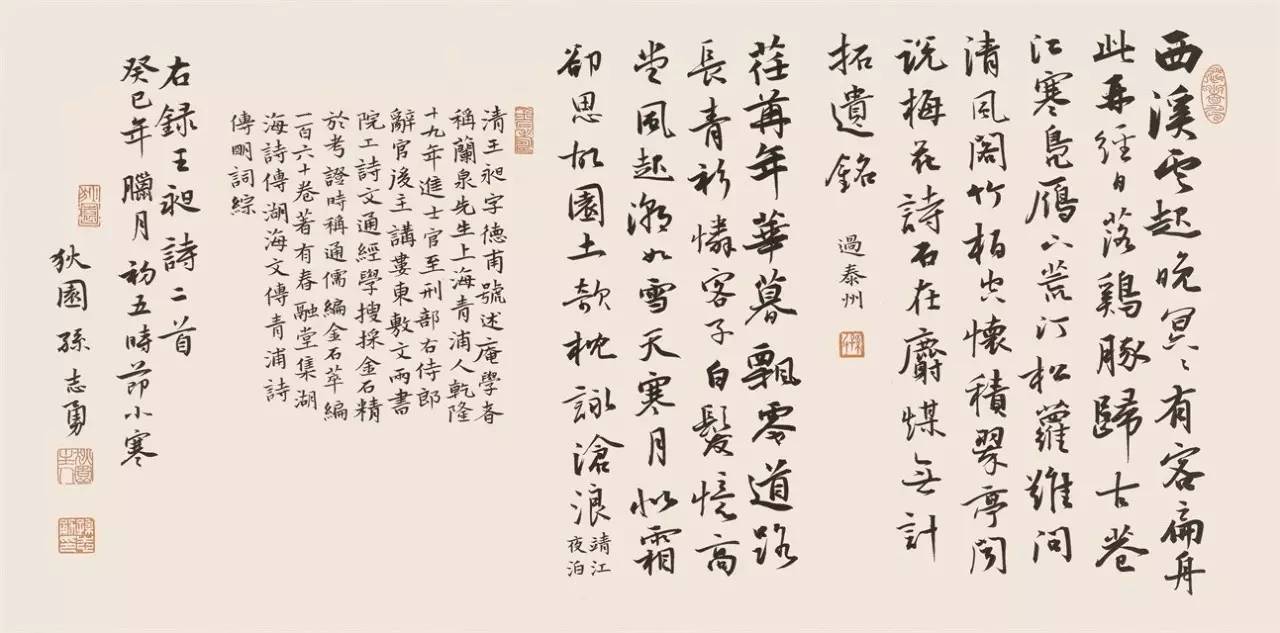 西溪雲起晚冥〻有客扁舟
此再經日落鷄豚歸古巷
江寒鳧雁下荒汀松蘿難問
清風閣竹柏空懷積翠亭聞
説梅花詩石在麝煤無計
拓遺銘
過泰州
荏苒年華暮飄零道路
長青衫憐客子白髮憶高
堂風起潮如雪天寒月似霜
卻思故園土欹枕詠滄浪
靖江
夜泊
清王昶字德甫號述庵學者
稱蘭泉先生上海青浦人乾隆
十九年進士官至刑部右侍郎
辭官後主講婁東敷文兩書
院工詩文通經學搜採金石精
於考證時稱通儒編金石萃編
一百六十卷著有春融堂集湖
海詩傳湖海文傳青浦詩
傳明詞綜
右錄王昶詩二首
癸巳年臘月初五時節小寒
狄園孫志勇